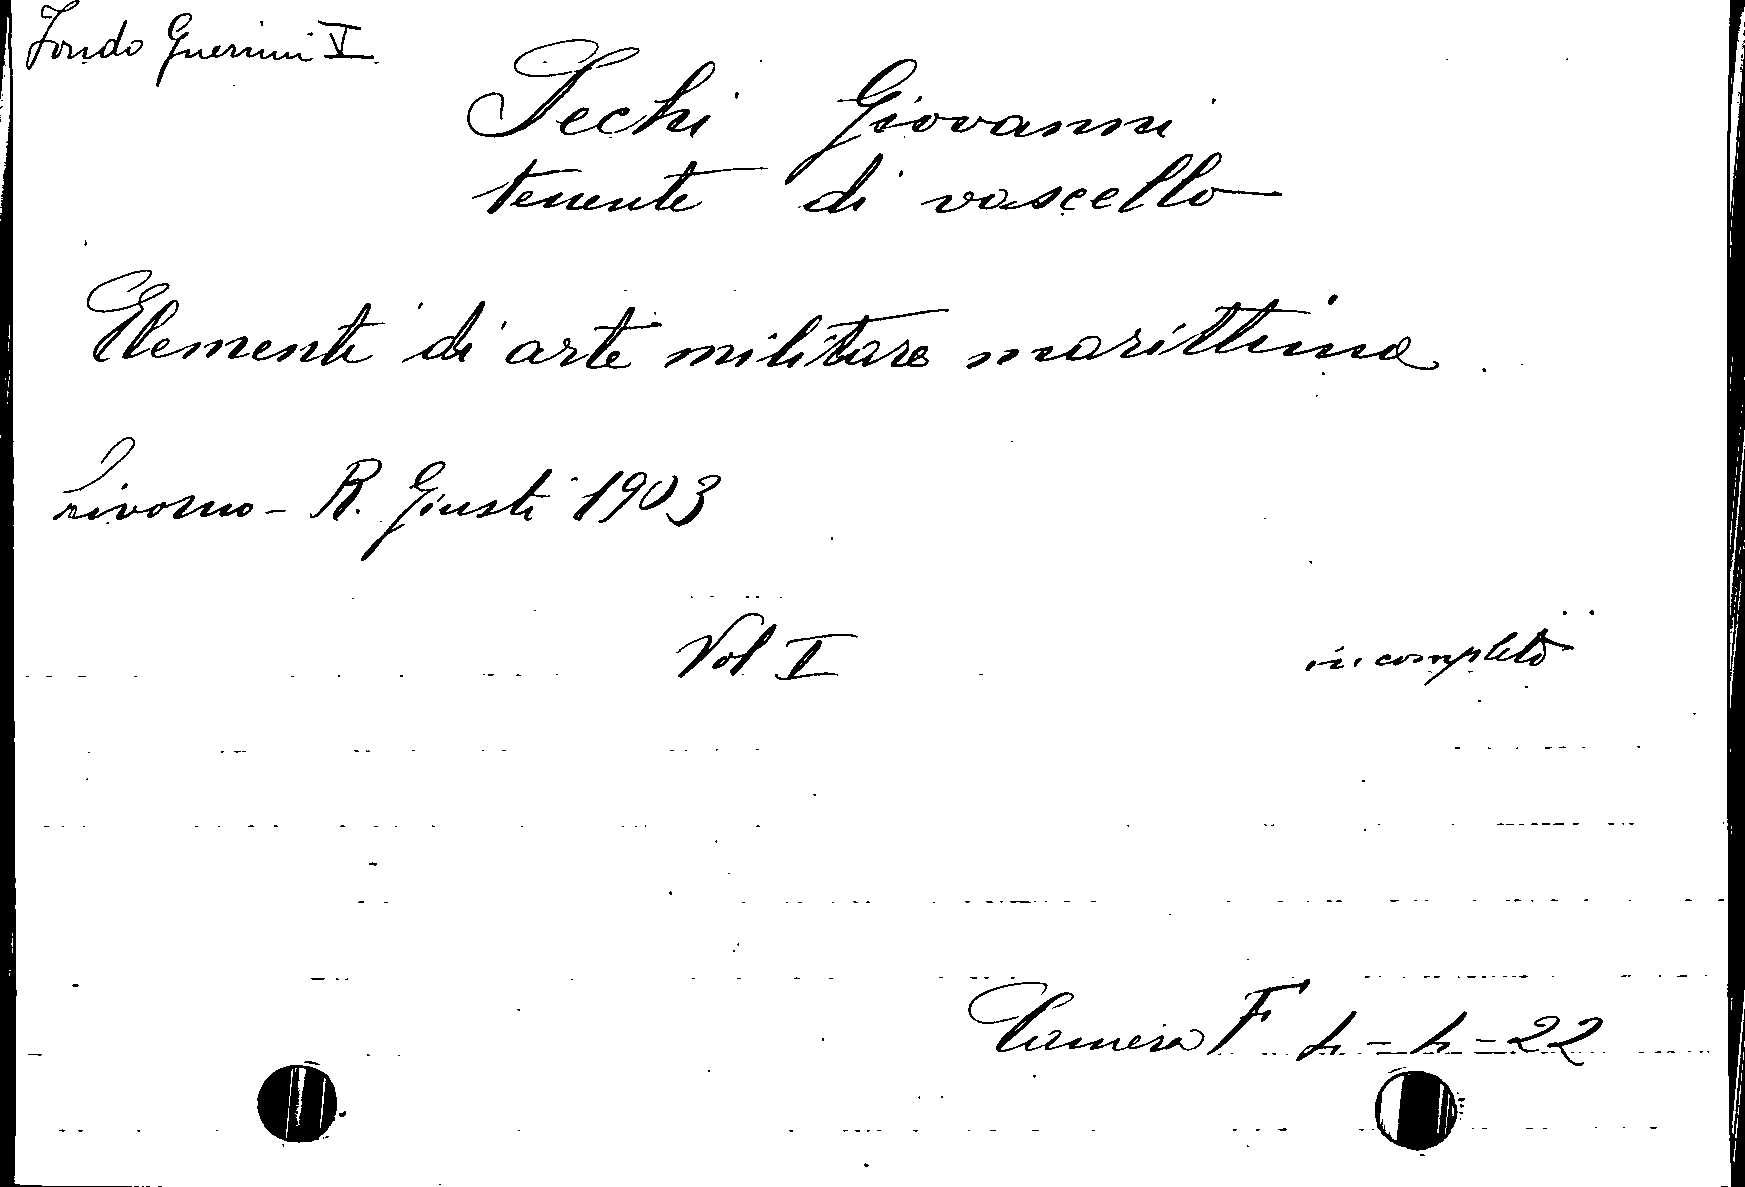 Fondo Guerrini V
Sechi Giovanni
tenente di vascello
Elementi di arte militare marittima
Livorno - R. Giusti 1903
Vol I incompleto
Camera F 4-4-22